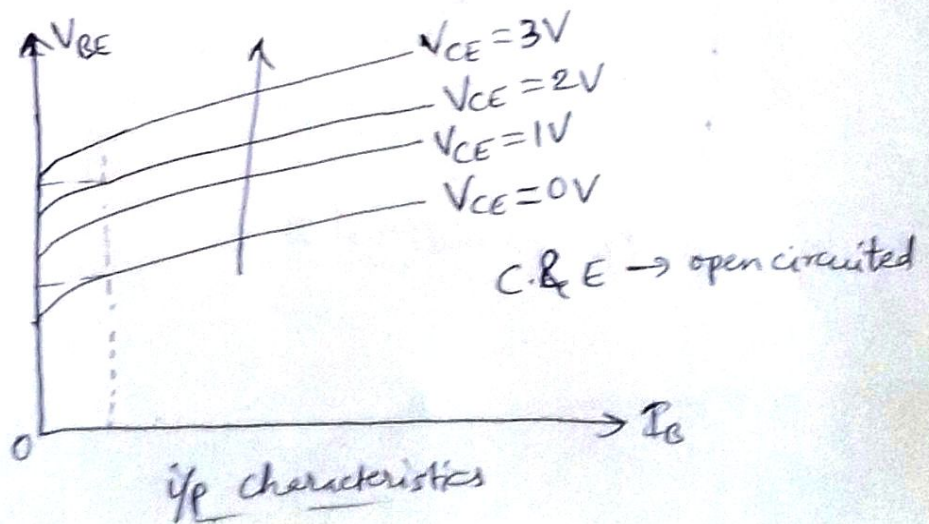 V_BE
V_CE = 3V
V_CE = 2V
V_CE = 1V
V_CE = 0V
C & E → open circuited
0
I_B
i/p characteristics